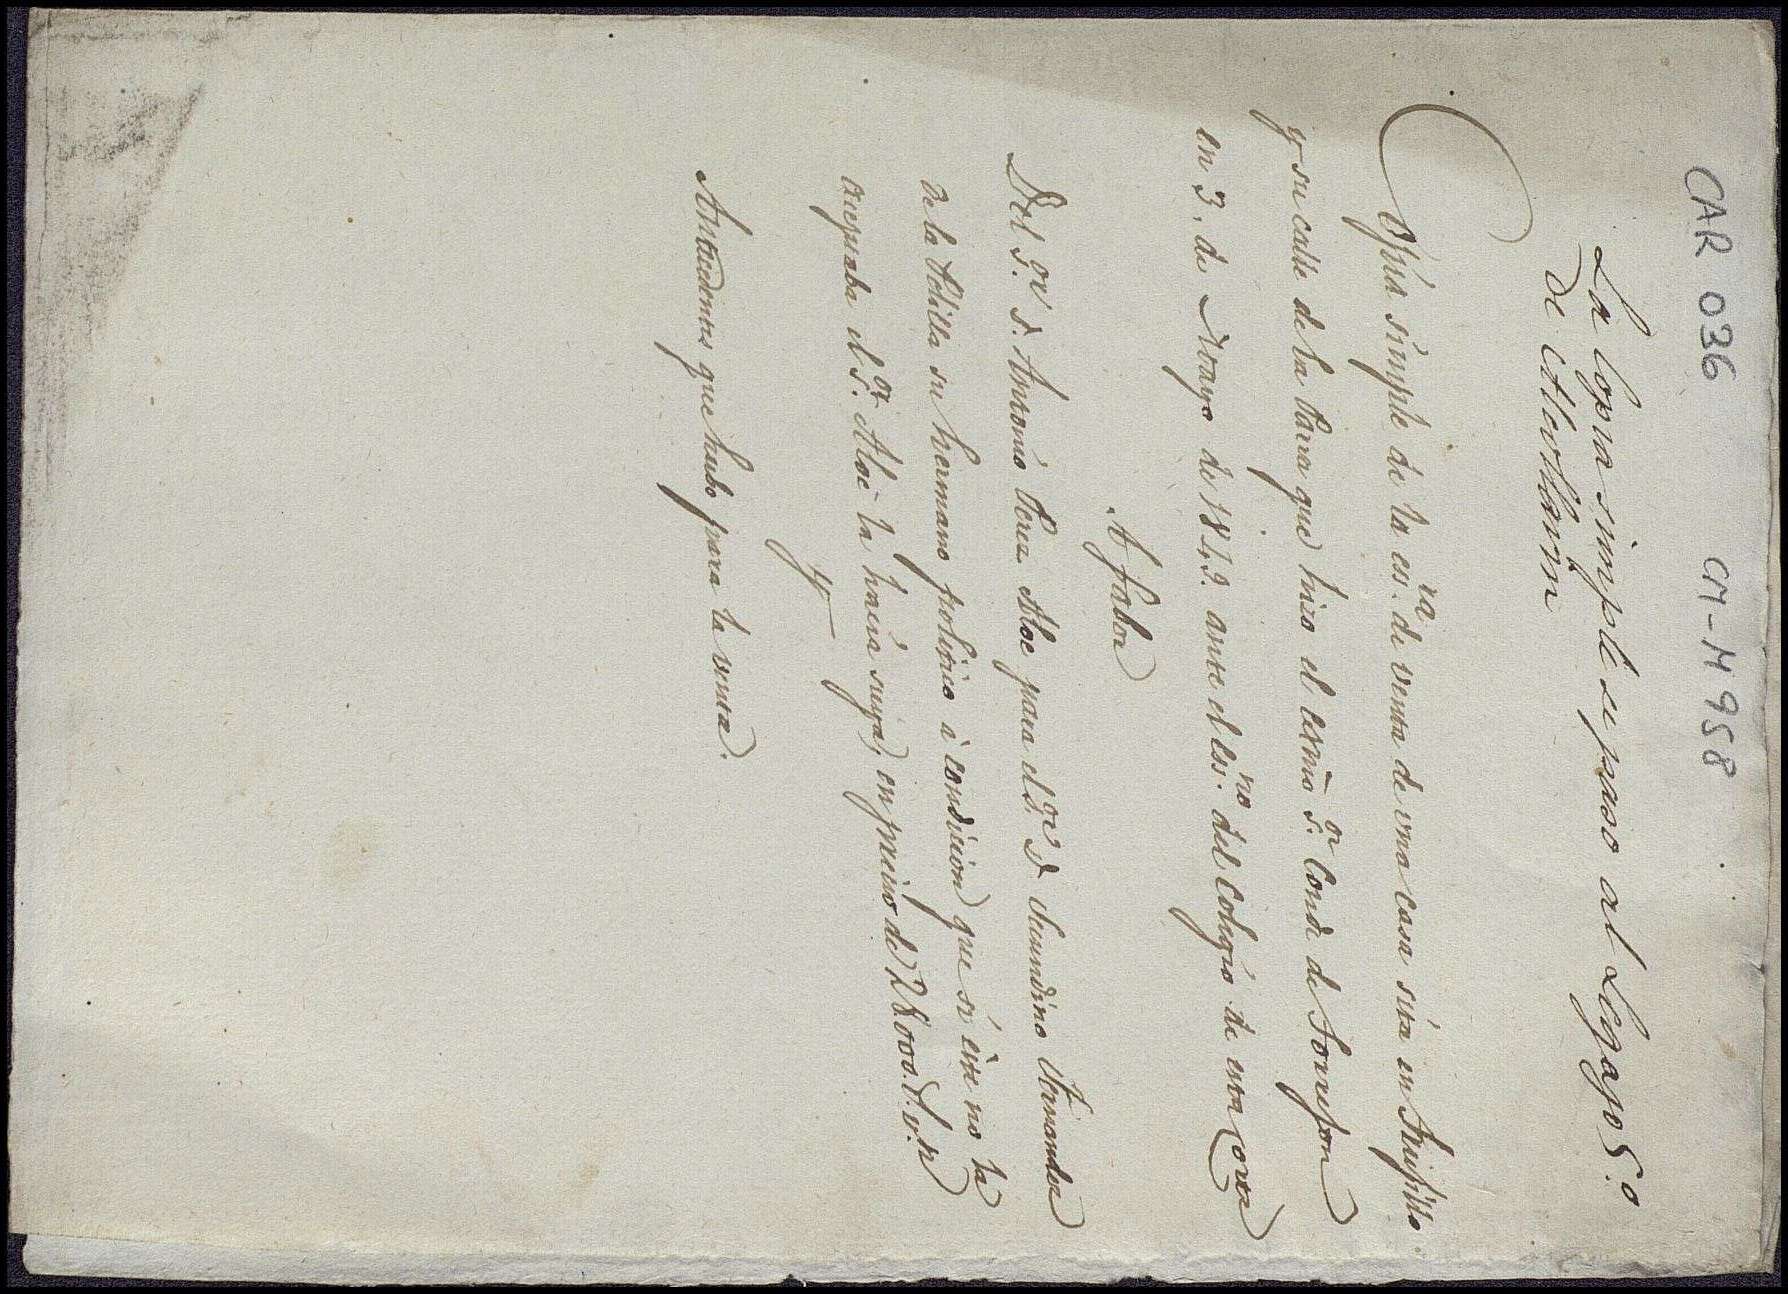 CAR 036 CM-M 958
La Copia simple se puso al Legajo 5.º
de
Copia simple de la es.ra de venta de una casa sita en Trujillo
y su calle de la Parra que hizo el Exmo S.or Conde de Torrejon
en 3. de Mayo de 1849. ante el Es.no del Colegio de esta Corte
A fabor
Del S.or D. Antonio Perez Aloe para el S.or D. Secundino Fernandez
de la Pelilla su hermano politico á condicion que si éste no la
aceptaba el S.or Aloe la haria suya, en precio de 28.000. r. v.n
y
Antecedentes que hubo para la venta.